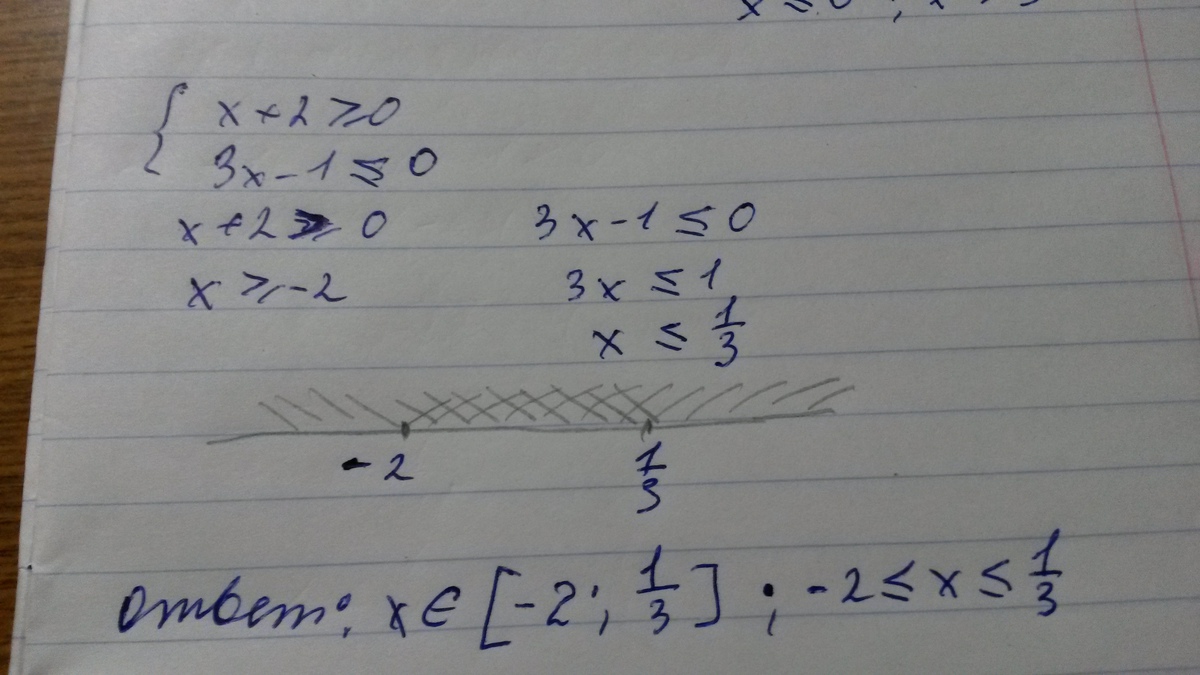 { x + 2 ≥ 0
3x - 1 ≤ 0
x + 2 ≥ 0 3x - 1 ≤ 0
x ≥ -2 3x ≤ 1
x ≤ 1/3
-2 1/3
ответ: x ∈ [-2; 1/3] ; -2 ≤ x ≤ 1/3